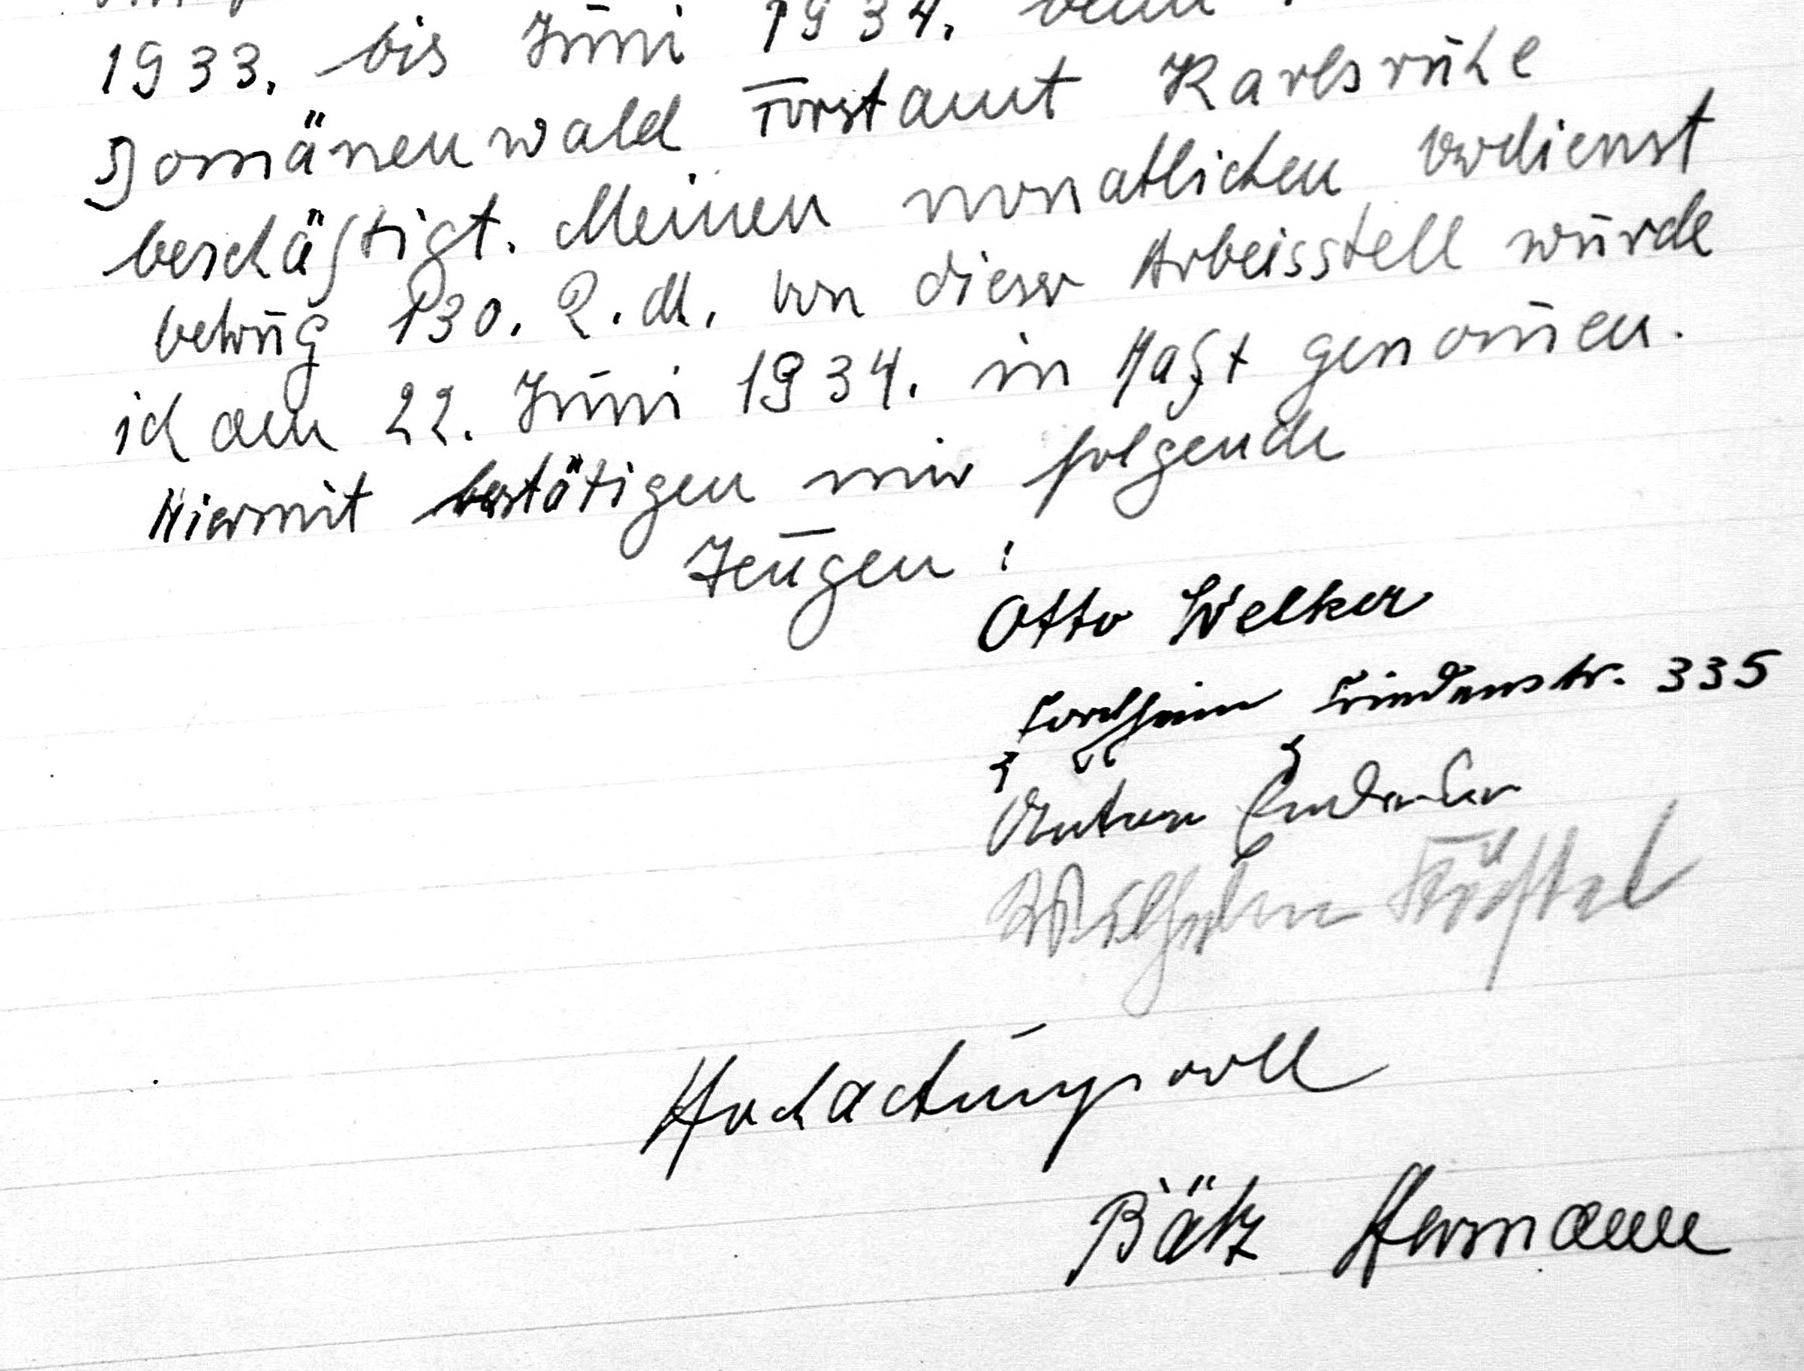 1933. bis Juni 1934. beim
Domänenwald Forstamt Karlsruhe
beschäftigt. Meinen monatlichen Verdienst
betrug 130. R.M. von dieser Arbeisstell wurde
ich am 22. Juni 1934. in Haft genom̄en.
Hiermit bestätigen mir folgende
Zeugen:
Otto Welker
Forchheim Friedenstr. 335
Anton
Wilhelm
Hochachtungsvoll
Bätz Hermann